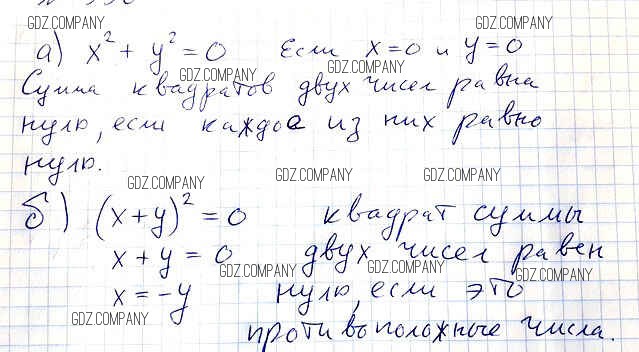 GDZ.COM GDZ.COMPANY GDZ.COMPANY
а) x² + y² = 0 Если x=0 и y=0
GDZ.COMPANY GDZ.COMPANY
Сумма квадратов двух чисел равна
нулю, если каждое из них равно
нулю.
GDZ.COMPANY GDZ.COMPANY GDZ.COMPANY
б) (x+y)² = 0 квадрат суммы
x + y = 0 двух чисел равен
GDZ.COMPANY GDZ.COMPANY GDZ.COMPANY
x = -y нулю, если это
GDZ.COMPANY
противоположные числа.